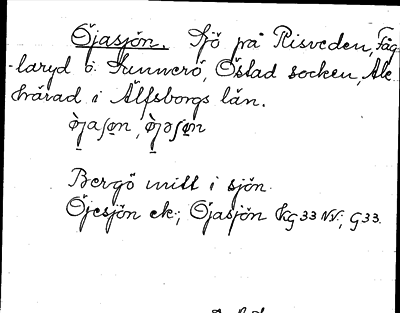 Öjasjön. Sjö på Risveden, Fäg-
laryd o. Sunnerö, Östad socken, Ale
härad i Älfsborgs län.
Bergö mitt i sjön.
Öjesjön ek; Öjasjön KG 33 NV; G 33.